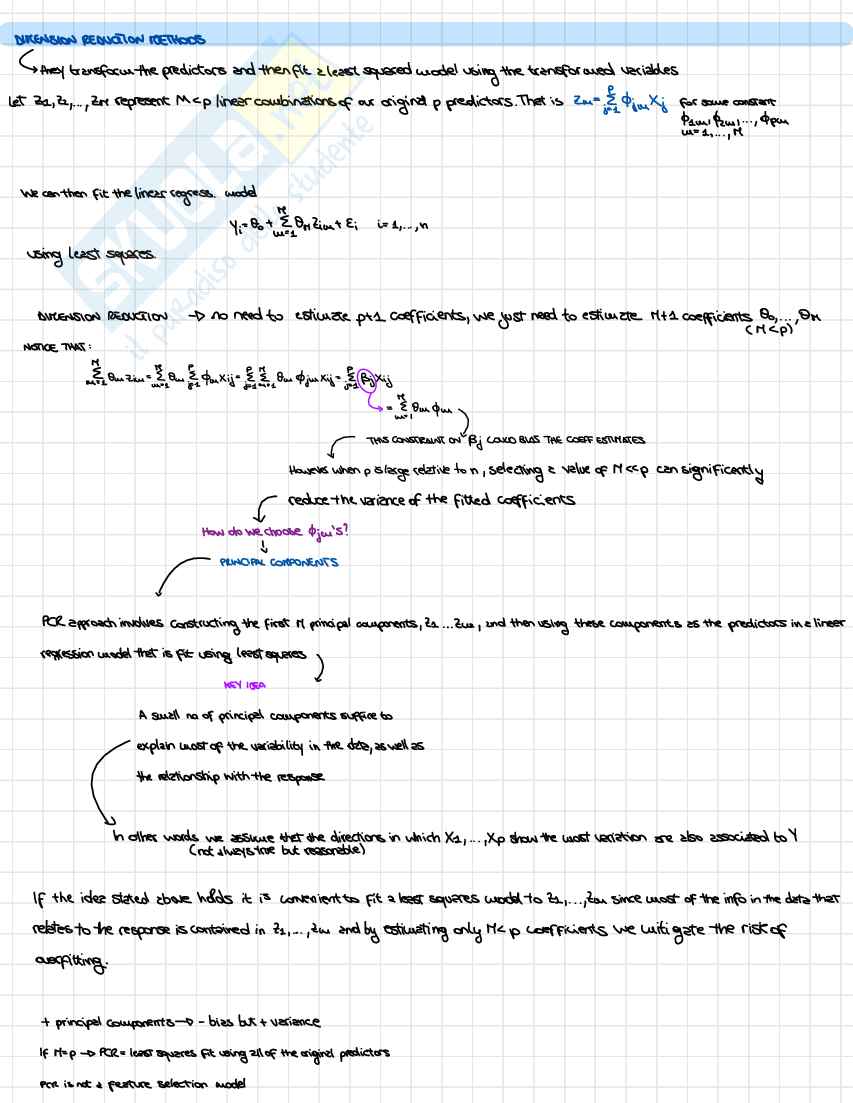 DIMENSION REDUCTION METHODS
↳ they transform the predictors and then fit a least squared model using the transformed variables
Let Z1, Z2, ..., ZM represent M<p linear combinations of our original p predictors. That is Zm = Σ_{j=1}^{p} ϕjm Xj for some constant
ϕ1m, ϕ2m, ..., ϕpm
m=1, ..., M
We can then fit the linear regress. model
Yi = θ0 + Σ_{m=1}^{M} θM Zim + Ɛi i=1, ..., n
using least squares.
DIMENSION REDUCTION → no need to estimate p+1 coefficients, we just need to estimate M+1 coefficients θ0, ..., θM
(M<p)
NOTICE THAT:
Σ_{m=1}^{M} θm zim = Σ_{m=1}^{M} θm Σ_{j=1}^{p} ϕjm Xij = Σ_{j=1}^{p} Σ_{m=1}^{M} θm ϕjm Xij = Σ_{j=1}^{p} βj Xij
= Σ_{m=1}^{M} θm ϕjm
THIS CONSTRAINT ON βj COULD BIAS THE COEFF ESTIMATES
However when p is large relative to n, selecting a value of M<<p can significantly
reduce the variance of the fitted coefficients
How do we choose ϕjm's?
PRINCIPAL COMPONENTS
PCR approach involves constructing the first M principal components, Z1 ... Zm, and then using these components as the predictors in a linear
regression model that is fit using least squares
KEY IDEA
A small no of principal components suffice to
explain most of the variability in the data, as well as
the relationship with the response
In other words we assume that the directions in which X1, ..., Xp show the most variation are also associated to Y
(not always true but reasonable)
If the idea stated above holds it is convenient to fit a least squares model to Z1, ..., Zm since most of the info in the data that
relates to the response is contained in Z1, ..., Zm and by estimating only M<p coefficients we mitigate the risk of
overfitting.
+ principal components → - bias but + variance
If M=p → PCR = least squares fit using all of the original predictors
PCR is not a feature selection model
SKUOLA.net
il paradiso dello studente